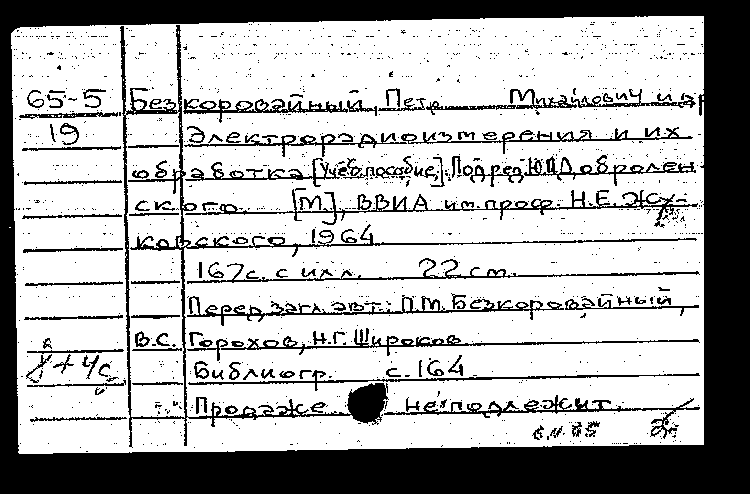 65-5 Безкоровайный, Петр Михайлович и др
19 Электрорадиоизмерения и их
обработка [Учеб. пособие]. Под ред. Ю.П. Добролен-
ского. [М], ВВИА им. проф. Н.Е. Жу-
ковского, 1964
167с. с илл. 22 см.
Перед загл. авт.: П.М. Безкоровайный,
В.С. Горохов, Н.Г. Широков
Библиогр. с. 164
Продаже не подлежит.